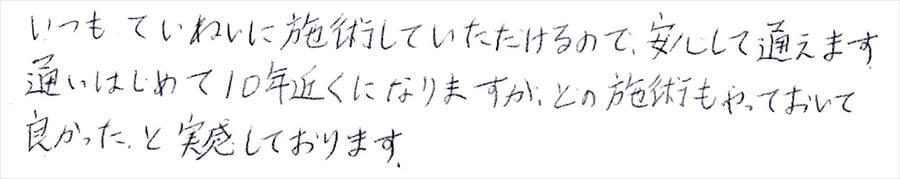 いつもていねいに施術していただけるので、安心して通えます。
通いはじめて10年近くになりますが、どの施術もやっておいて
良かった、と実感しております。